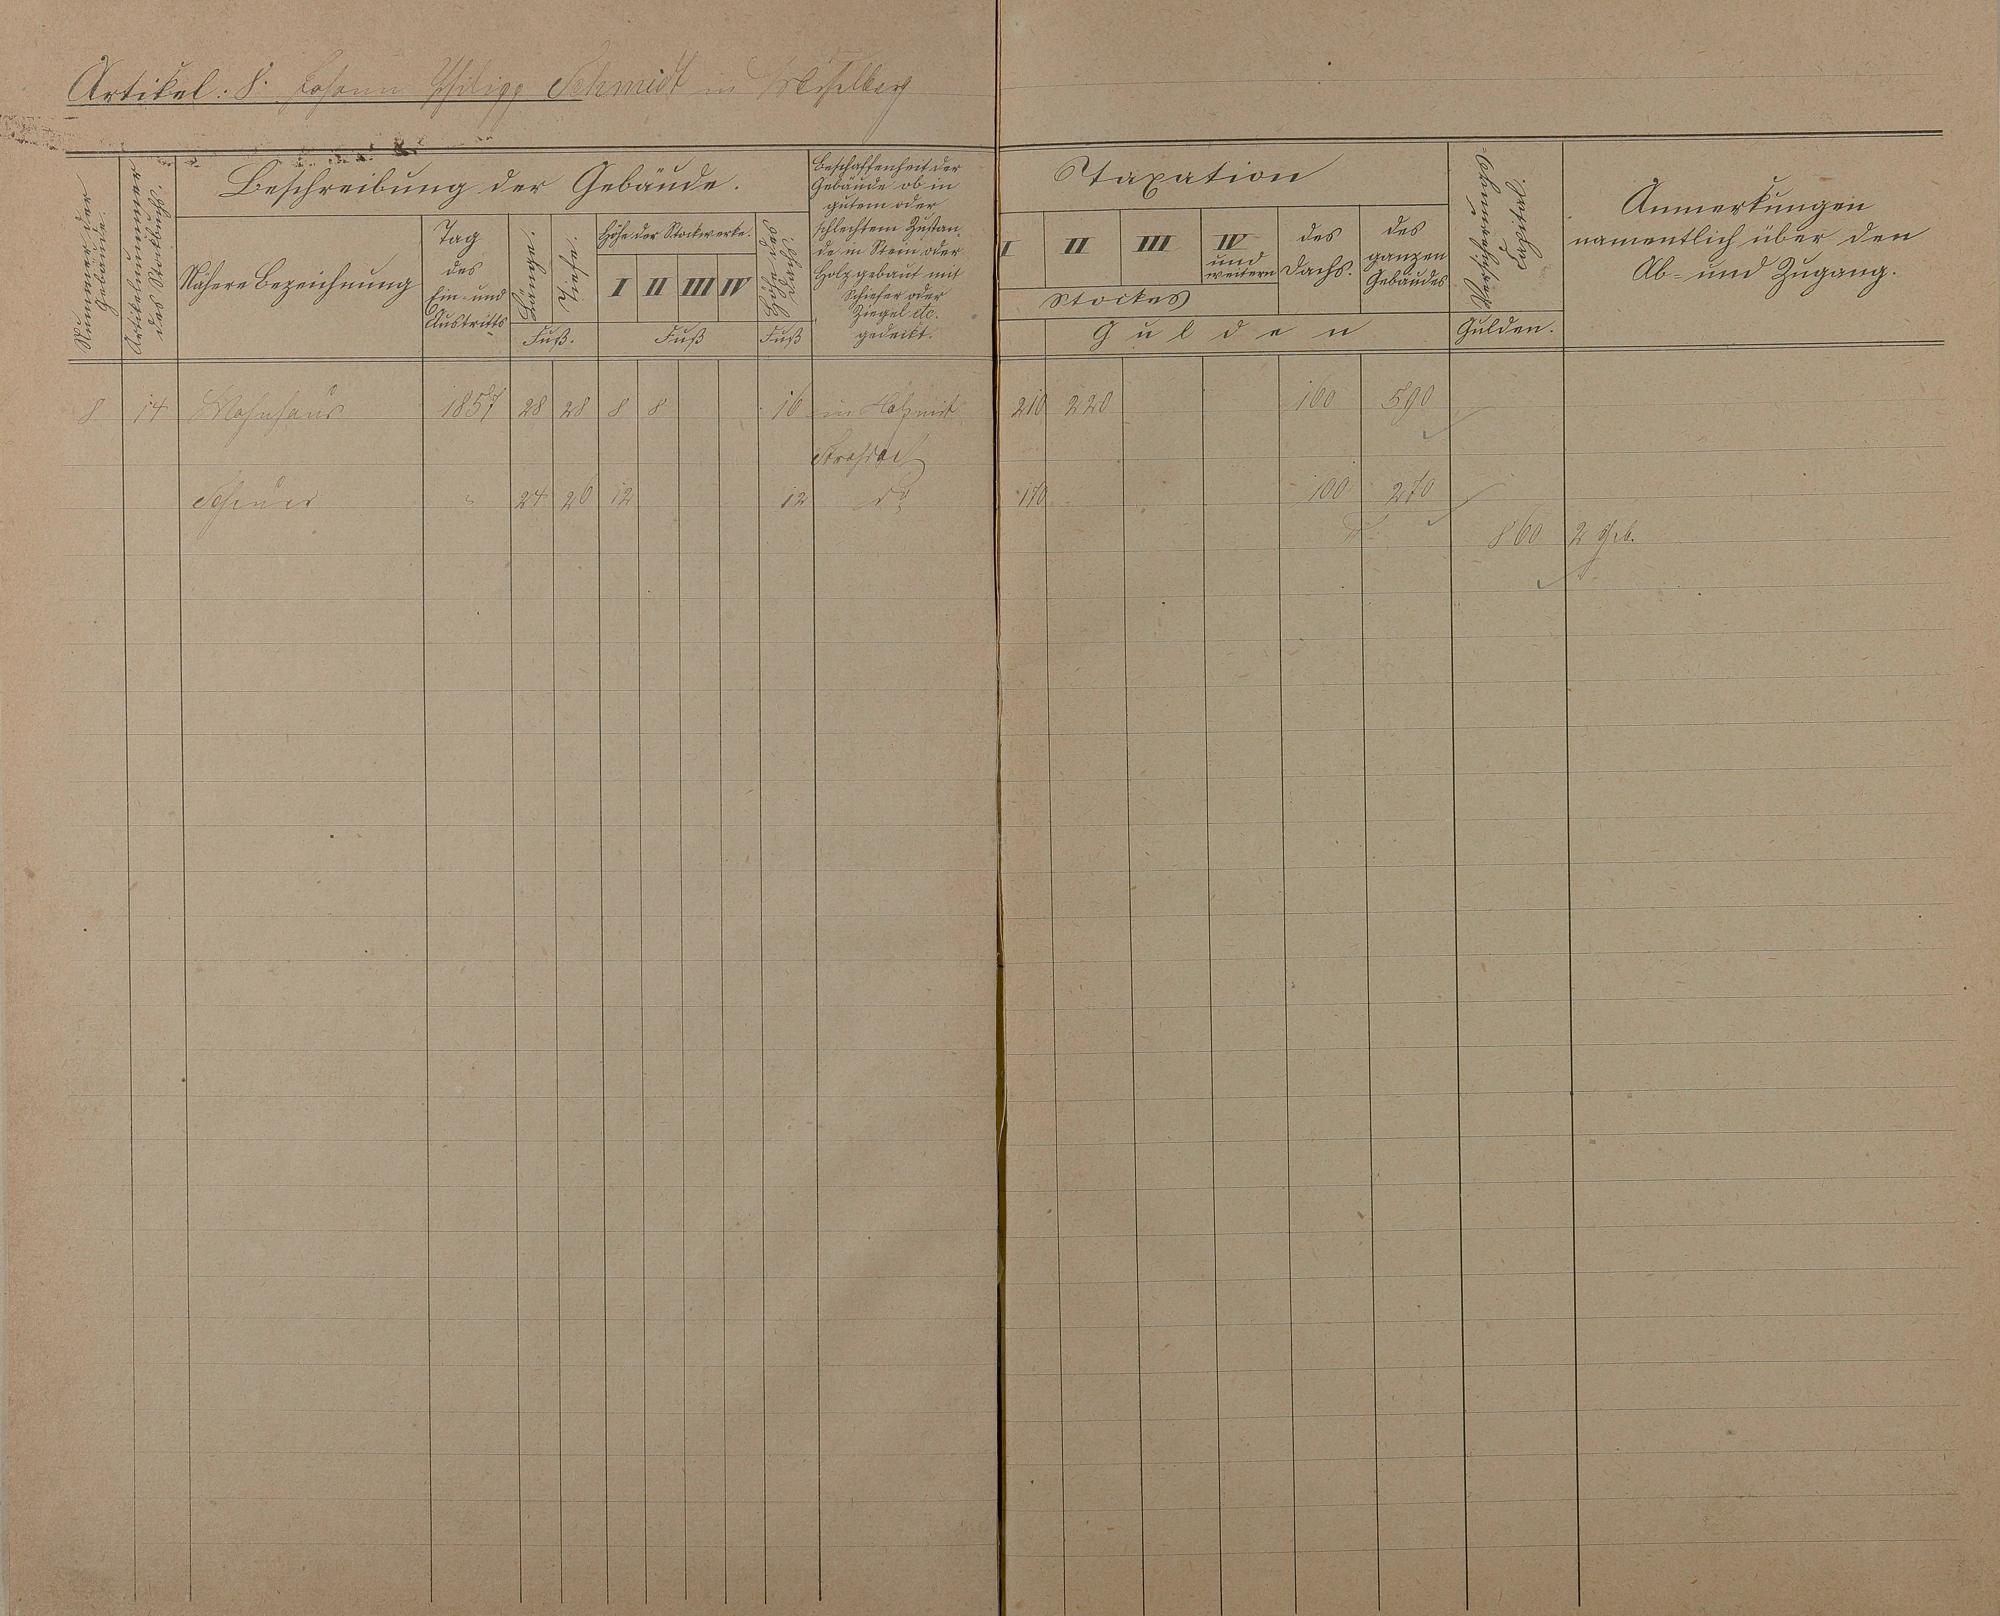 Artikel: 8. Johann Philipp Schmidt in
Nummer der Gebäude.
Artikelnummer des Stockbuchs.
Beschreibung der Gebäude.
Nähere Bezeichnung
Tag
des
Ein- und
Austritts
Länge.
Tiefe.
Fuß.
Höhe der Stockwerke.
I II III IV
Fuß
Höhe des Dachs.
Fuß
Beschaffenheit der
Gebäude ob in
gutem oder
schlechtem Zustan-
de in Stein oder
Holz gebaut mit
Schiefer oder
Ziegel etc.
gedeckt.
Taxation
I II III IV
und
weitern
Stockes
des
Dachs.
des
ganzen
Gebäudes
Gulden
Versicherungs-
Capital.
Gulden.
Anmerkungen
namentlich über den
Ab- und Zugang.
8 14 Wohnhaus 1857 28 28 8 8 16 in Holz mit 210 220 160 590
Strohdach
Scheuer " 24 20 12 12 do 170 100 270
860 2 Geb.